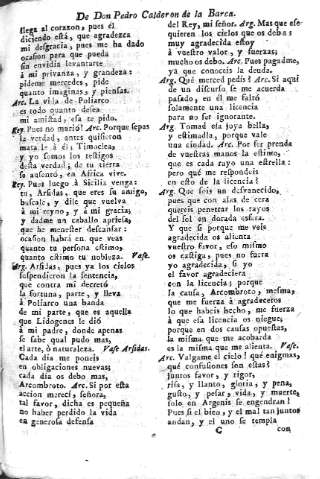 De Don Pedro Calderon de la Barca.
llega al corazon, pues él
diciendo está, que agradezca
mi desgracia, pues me ha dado
ocasion para que pueda
sin envidia levantarte
à mi privanza, y grandeza:
pideme mercedes, pide
quanto imaginas, y piensas.
Arc. La vida de Poliarco
es todo quanto desea
mi amistad, esa te pido.
Rey. Pues no murió? Arc. Porque sepas
la verdad, antes quisieron
matarle à él, Timoclea,
y yo somos los testigos
desta verdad, de tu tierra
se ausentó, en Africa vive.
Rey. Pues luego à Sicilia vengas
tu, Arsidas, que eres su amigo,
buscale, y dile que vuelva
à mi reyno, y à mi gracia,
y dadme un caballo apriesa,
que he menester descansar:
ocasion habrá en que veas
quanto tu persona estimo,
quanto estimo tu nobleza. Vase.
Arg. Arsidas, pues ya los cielos
suspendieron la sentencia,
que contra mi decretó
la fortuna, parte, y lleva
à Poliarco una banda
de mi parte, que es aquella
que Lidogenes le dió
à mi padre, donde apenas
se sabe qual pudo mas,
el arte, ò naturaleza. Vase Arsidas.
Cada dia me poneis
en obligaciones nuevas;
cada dia os debo mas,
Arcombroto. Arc. Si por esta
accion merecí, señora,
tal favor, dicha es pequeña
no haber perdido la vida
en generosa defensa
del Rey, mi señor. Arg. Mas que ese
quieren los cielos que os deba:
muy agradecida estoy
à vuestro valor, y fuerzas;
mucho os debo. Arc. Pues pagadme,
ya que conoceis la deuda.
Arg. Qué merced pedís? Arc. Si aquí
de un discurso se me acuerda
pasado, en él me faltó
solamente una licencia
para no ser ignorante.
Arg. Tomad esa joya bella,
y estimadla, porque vale
una ciudad. Arc. Por ser prenda
de vuestras manos la estimo,
que es cada rayo una estrella:
pero qué me respondeis
en esto de la licencia?
Arg. Que sois un desvanecido,
pues que con alas de cera
quereis penetrar los rayos
del sol en dorada esfera.
Y que si porque me veis
agradecida os alienta
vuestro favor, eso mismo
os castiga; pues no fuera
yo agradecida, si yo
el favor agradeciera
con la licencia; porque
la causa, Arcombroto, mesma,
que me fuerza à agradeceros
lo que habeis hecho, me fuerza
à que esa licencia os niegue;
porque en dos causas opuestas,
la misma que me acobarda
es la misma que me alienta. Vase.
Arc. Valgame el cielo! qué enigmas,
qué confusiones son estas?
Juntos favor, y rigor,
risa, y llanto, gloria, y pena,
gusto, y pesar, vida, y muerte,
solo en Argenis se engendran!
Pues si el bien, y el mal tan juntos
andan, y el uno se templa
C con